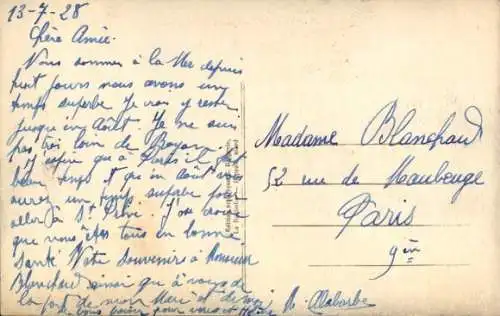 13-7-28
Chère Amie.
Nous sommes à la Mer depuis
huit jours nous avons un
temps superbe Je vais y rester
jusqu'en Août. Je ne suis
pas très loin de Royan.
J'espère qu'à Paris il fait
beau temps et qu'en Août vous
aurez un temps superbe pour
aller à St
que vous êtes tous en bonne
santé. Votre souvenir à Monsieur
Blanchaud ainsi qu'à vous de
la part de mon Mari et de moi
Madame Blanchaud
52 rue de Maubeuge
Paris
9em